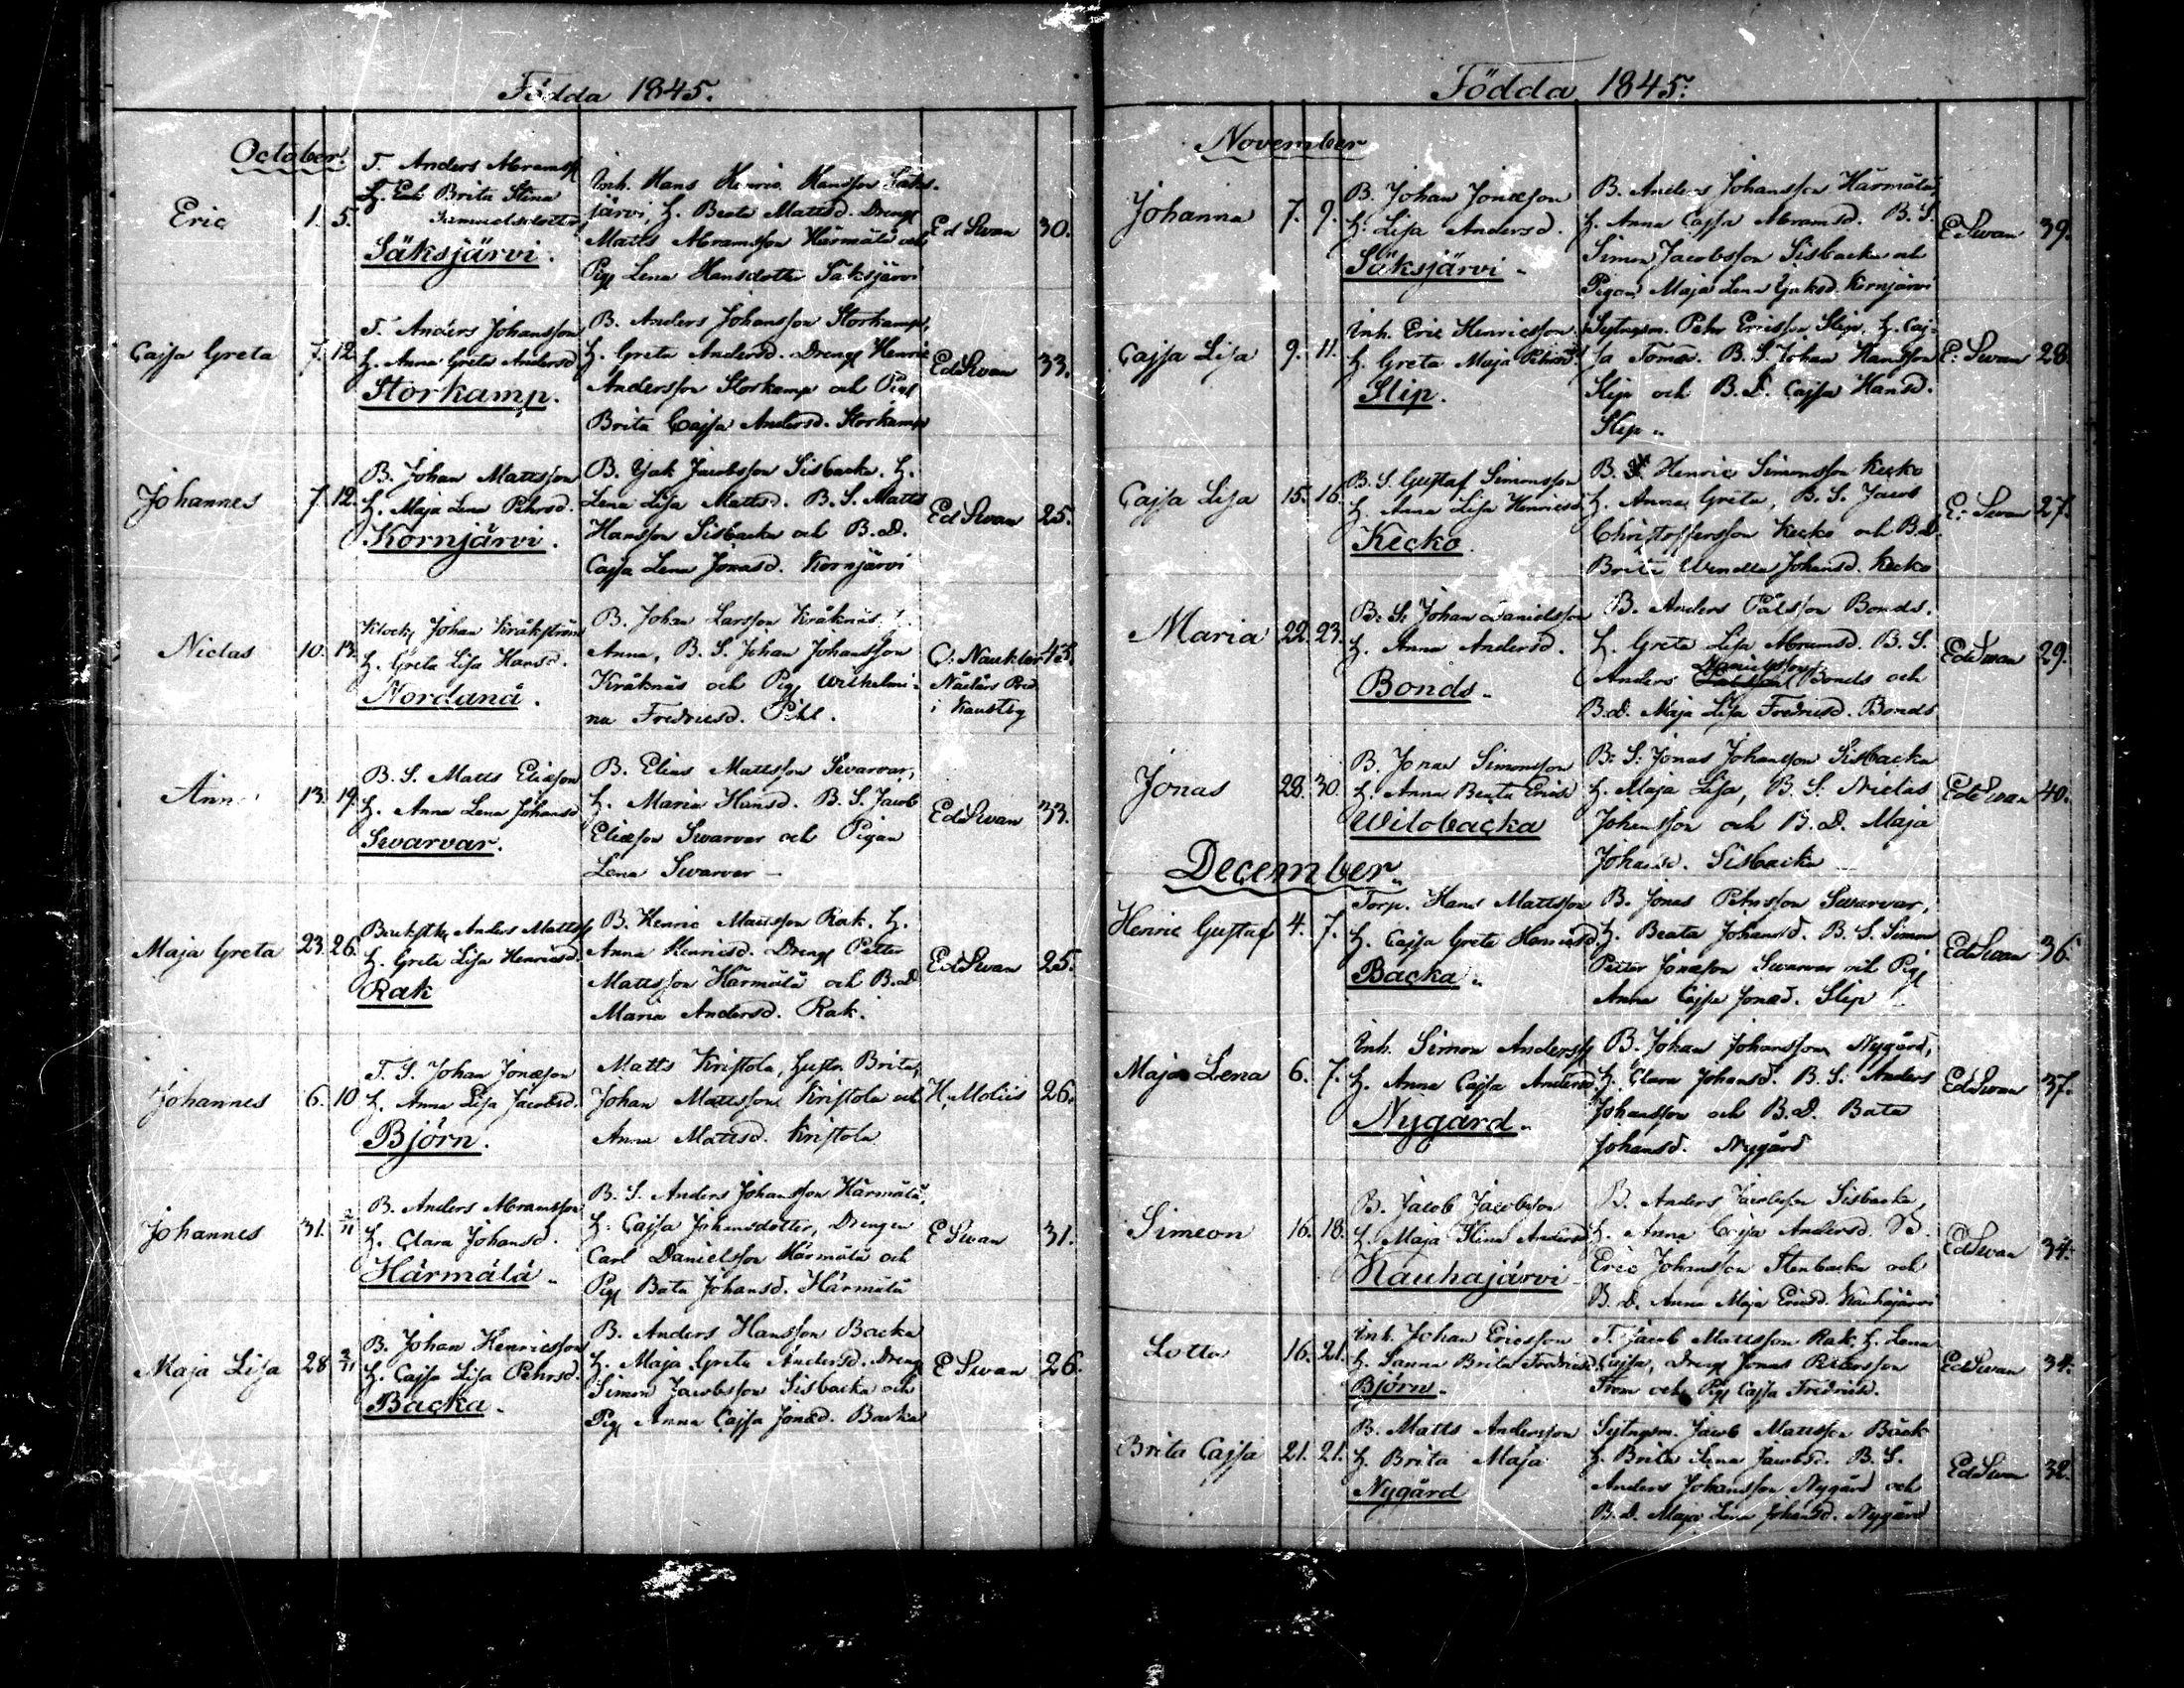 Födda 1845.
October.
Eric 1. 5.
T. Anders Abramss
H. Brita Stina
Samuelsdotter
Säksjärvi.
Inh. Hans Henric Hansson Säks-
järvi, H. Beata Mattsd. Dreng
Matts Abramsson Härmälä och
Pig Lena Hansdotter Säksjärvi
Ed Svan 30.
Cajsa Greta 7. 12.
T. Anders Johansson
H. Anna Greta Andersd
Storkamp.
B. Anders Johansson Storkamp,
H. Greta Andersd. Dreng Henric
Andersson Storkamp och Pig
Brita Cajsa Andersd. Storkamp
Ed Svan 33.
Johannes 7. 12.
B. Johan Mattsson
H. Maja Lena Pehrsd.
Körnjärvi.
B. Isak Jacobsson Sisbacka. H.
Lena Lisa Mattsd. B. S. Matts
Hansson Sisbacka och B. D.
Cajsa Lena Jonasd. Körnjärvi
Ed Svan 25.
Niclas 10. 13.
Klock. Johan Kråkström
H. Greta Lisa Hansd.
Nordanå.
B. Johan Larsson Kråknäs,
Anna, B. S. Johan Johansson
Kråknäs och Pig Wilhelmi-
na Fredricsd. Pihl.
O. Naukler 43.
Nådårs Pred.
i Kaustby
Anna 13. 19.
B. S. Matts Eliasson
H. Anna Lena Johansd
Svarvar.
B. Elias Mattsson Svarvar,
H. Maria Hansd. B. S. Jacob
Eliasson Svarvar och Pigan
Lena Svarvar
Ed Svan 33.
Maja Greta 23. 26.
Anders Mattss
H. Greta Lisa Henricsd.
Rak
B. Henric Mattsson Rak. H.
Anna Henricsd. Dreng Petter
Mattsson Härmälä och B. D
Maria Andersd. Rak.
Ed Svan 25.
Johannes 6. 10
T. S. Johan Jonasson
H. Anna Lisa Jacobsd.
Björn.
Matts Kristola, Hustr. Brita,
Johan Mattsson Kristola och
Anna Mattsd. Kristola
H. Moliis 26.
Johannes 31. 2/11
B. Anders Abramsson
H. Clara Johansd.
Härmälä.
B. S. Anders Johansson Härmälä,
H. Cajsa Johansdotter, Drengen
Carl Danielsson Härmälä och
Pig Bata Johansd. Härmälä
E Svan 31.
Maja Lisa 28 2/11
B. Johan Henricsson
H. Cajsa Lisa Pehrsd.
Backa.
B. Anders Hansson Backa
H. Maja Greta Andersd. Dreng
Simon Jacobsson Sisbacka och
Pig Anna Cajsa Jonasd. Backa
E Svan 26.
Födda 1845.
November
Johanna 7. 9.
B. Johan Jonasson
H. Lisa Andersd.
Säksjärvi
B. Anders Johansson Härmälä,
H. Anna Cajsa Abramsd. B. S.
Simon Jacobsson Sisbacka och
Pigan Maja Lena Isaksd. Körnjärvi
E Svan 39.
Cajsa Lisa 9. 11.
Inh. Eric Henricsson
H. Greta Maja Pehrsd.
Slip.
Sytngsm. Pehr Ericsson Slip, H. Caj-
sa Tomasd. B. S. Johan Hansson
Slip och B. D. Cajsa Hansd.
Slip
E. Svan 28.
Cajsa Lisa 15. 16.
B. S. Gustaf Simonsson
H. Anna Lisa Henricsd
Kecko
B. Henric Simonsson Kecko
H. Anna Greta, B. S. Jacob
Christoffersson Kecko och B. D.
Brita Wendla Johansd. Kecko
E. Svan 27.
Maria 22. 23.
B. S. Johan Danielsson
H. Anna Andersd.
Bonds.
B. Anders Pålsson Bonds.
H. Greta Lisa Abramsd. B. S.
Danielsson
Anders Bonds och
B. D. Maja Lisa Fredricsd. Bonds
Ed Svan 29.
Jonas 28. 30.
B. Jonas Simonsson
H. Anna Beata Ericsd
Widbacka
B. S. Jonas Johansson Sisbacka
H. Maja Lisa, B. S. Niclas
Johansson och B. D. Maja
Johansd. Sisbacka
Ed Svan 40.
December.
Henric Gustaf 4. 7.
Torp. Hans Mattsson
H. Cajsa Greta Hansd
Backa
B. Jonas Pehrsson Svarvar,
H. Beata Johansd. B. S. Simon
Petter Jonasson Svarvar och Pig
Anna Cajsa Jonasd. Slip
Ed Svan 36.
Maja Lena 6. 7.
Inh. Simon Anderss
H. Anna Cajsa Andersd
Nygård.
B. Johan Johansson Nygård,
H. Clara Johansd. B. S. Anders
Johansson och B. D. Bata
Johansd. Nygård
Ed Svan 37.
Simeon 16. 18.
B. Jacob Jacobsson
H. Maja Stina Andersd
Kauhajärvi
B. Anders Jacobsson Sisbacka,
H. Anna Cajsa Andersd. B.
Eric Johansson Stenbacka och
B. D. Anna Maja Ericsd. Kauhajärvi
Ed Svan 34.
Lotta 16. 21.
Inh. Johan Ericsson
H. Sanna Brita Fredricsd
Björn.
T. Jacob Mattsson Rak, H. Lena
Cajsa, Dreng Jonas Pettersson
From och Pig Cajsa Fredricsd.
Ed Svan 34.
Brita Cajsa 21. 21.
B. Matts Andersson
H. Brita Maja
Nygård
Sytngsm. Jacob Mattsson Bäck
H. Brita Lena Jacobsd. B. S.
Anders Johansson Nygård och
B. D. Maja Lena Johansd. Nygård
Ed Svan 32.